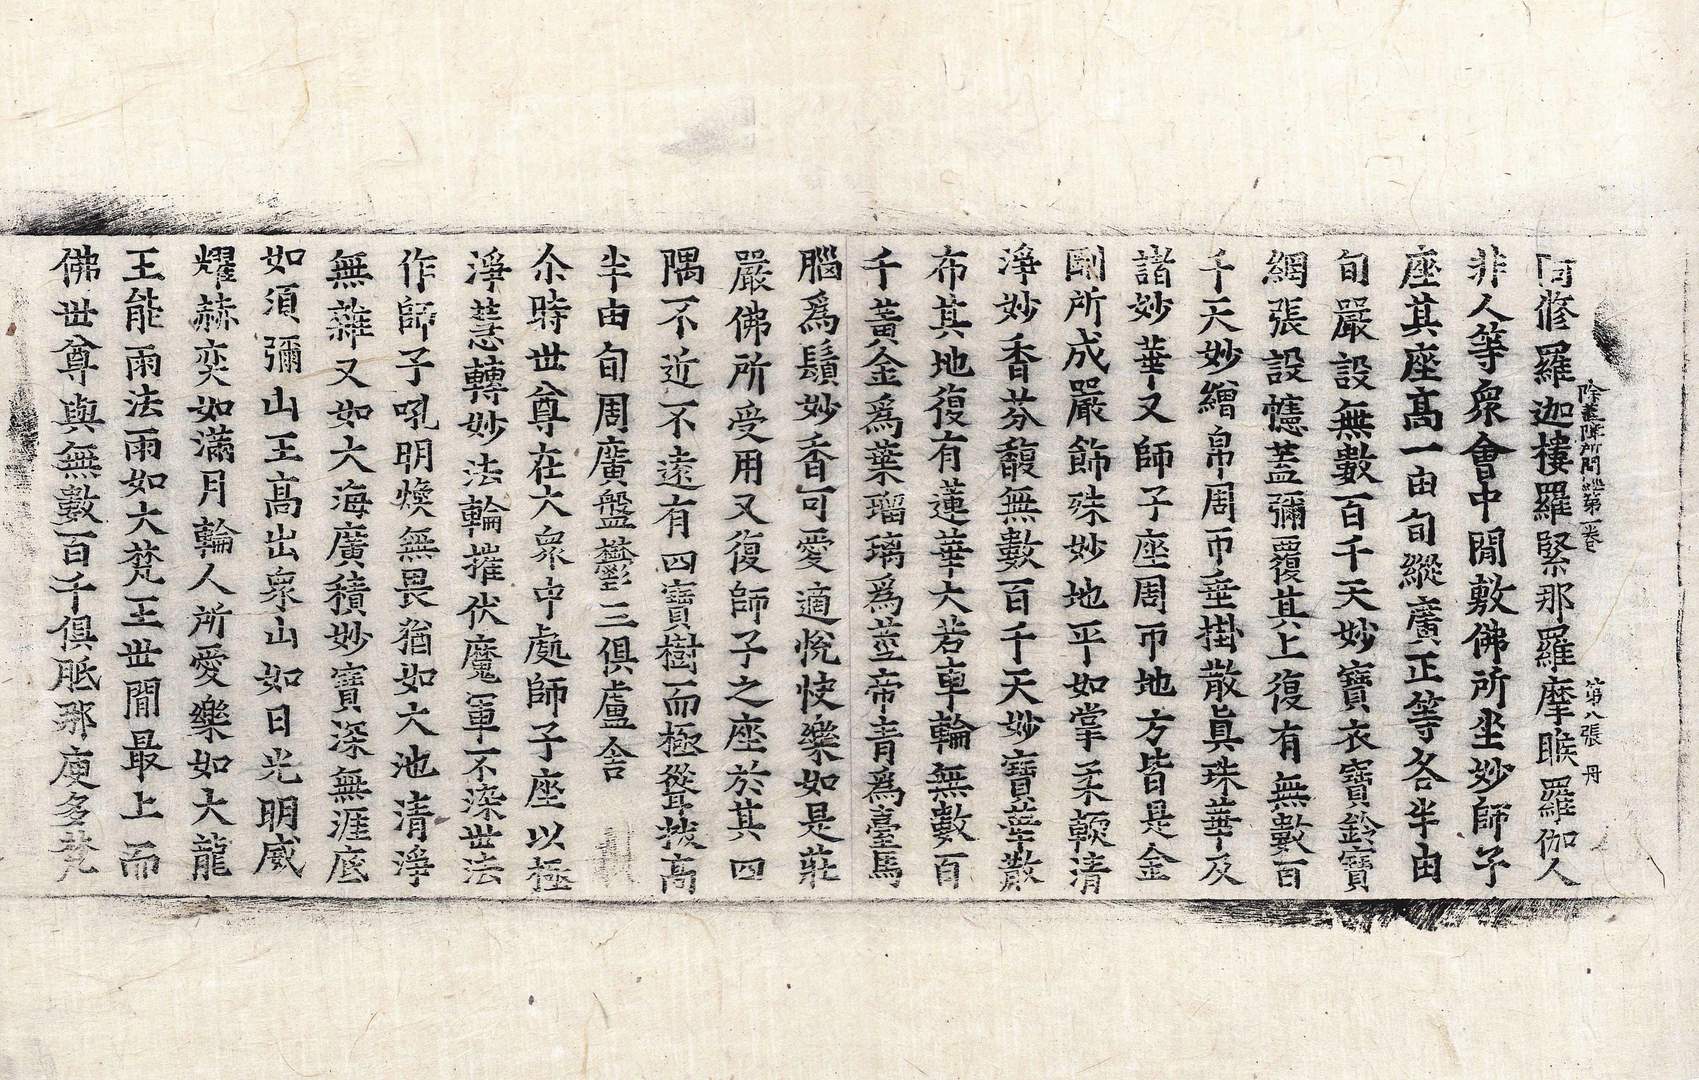 除蓋障所問經第一卷 第八張 丹
阿脩羅迦樓羅緊那羅摩睺羅伽人
非人等衆會中閒敷佛所坐妙師子
座其座高一由旬縱廣正等各半由
旬嚴設無數百千天妙寶衣寶鈴寶
網張設幰蓋彌覆其上復有無數百
千天妙繒帛周帀垂掛散眞珠華及
諸妙華又師子座周帀地方皆是金
剛所成嚴飾殊妙地平如掌柔軟清
淨妙香芬馥無數百千天妙寶華散
布其地復有蓮華大若車輪無數百
千黃金爲葉瑠璃爲莖帝青爲臺馬
腦爲鬚妙香可愛適悅快樂如是莊
嚴佛所受用又復師子之座於其四
隅不近不遠有四寶樹而極聳拔高
半由旬周廣盤欝三俱盧舍
尒時世尊在大衆中處師子座以極
淨慧轉妙法輪摧伏魔軍不染世法
作師子吼明煥無畏猶如大池清淨
無雜又如大海廣積妙寶深無涯底
如須彌山王高出衆山如日光明威
耀赫奕如滿月輪人所愛樂如大龍
王能雨法雨如大梵王世閒最上而
佛世尊與無數百千俱胝那庾多梵